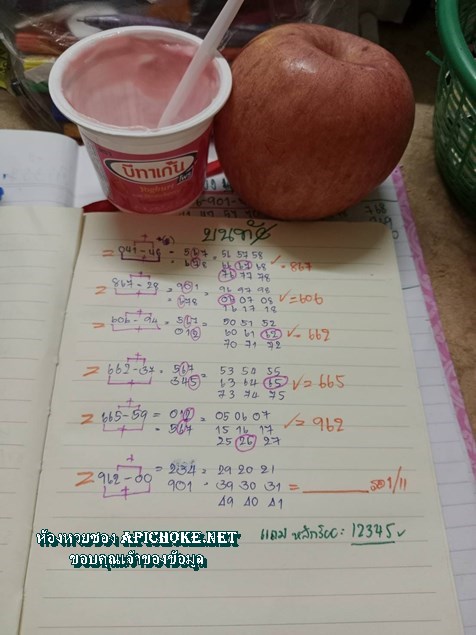 บีทาเก้น
บนทัด
041-48 = 567 = 56 57 58 ✓ = 867
= 678 66 67 68
76 77 78
867-28 = 901 = 96 97 98 ✓ = 606
= 678 06 07 08
16 17 18
606-94 = 567 = 50 51 52 ✓ = 662
012 60 61 62
70 71 72
662-37 = 567 = 53 54 55 ✓ = 665
345 63 64 65
73 74 75
665-59 = 012 = 05 06 07 ✓ = 962
= 567 15 16 17
25 26 27
962-00 = 234 = 29 20 21
901 = 39 30 31 = ______ รอ 1/11
49 40 41
แถม หลักร้อย: 12345 ✓
ห้องหวยซอง APICHOKE.NET
ขอบคุณเจ้าของข้อมูล